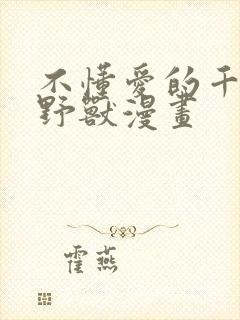 不懂愛的千
野獸漫畫
霍燕